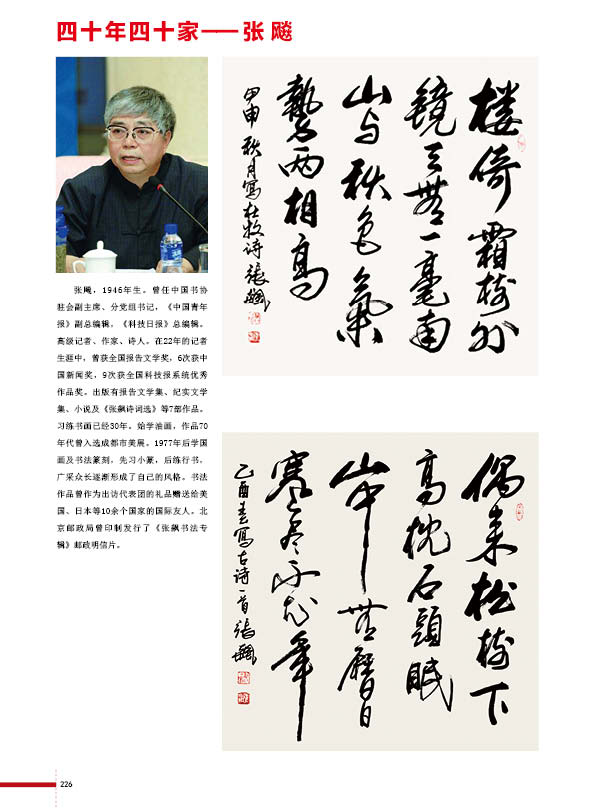 四十年四十家——张 飚
张飚，1946年生。曾任中国书协
驻会副主席、分党组书记，《中国青年
报》副总编辑，《科技日报》总编辑。
高级记者、作家、诗人。在22年的记者
生涯中，曾获全国报告文学奖，6次获中
国新闻奖，9次获全国科技报系统优秀
作品奖。出版有报告文学集、纪实文学
集、小说及《张飙诗词选》等7部作品。
习练书画已经30年。始学油画，作品70
年代曾入选成都市美展。1977年后学国
画及书法篆刻，先习小篆，后练行书，
广采众长逐渐形成了自己的风格。书法
作品曾作为出访代表团的礼品赠送给美
国、日本等10余个国家的国际友人。北
京邮政局曾印制发行了《张飙书法专
辑》邮政明信片。
楼倚霜树外
镜天無一毫南
山与秋色氣
勢两相高
甲申秋月写杜牧诗張飆
偶来松树下
高枕石頭眠
山中無曆日
寒尽不知年
乙酉春写古诗一首張飆
226